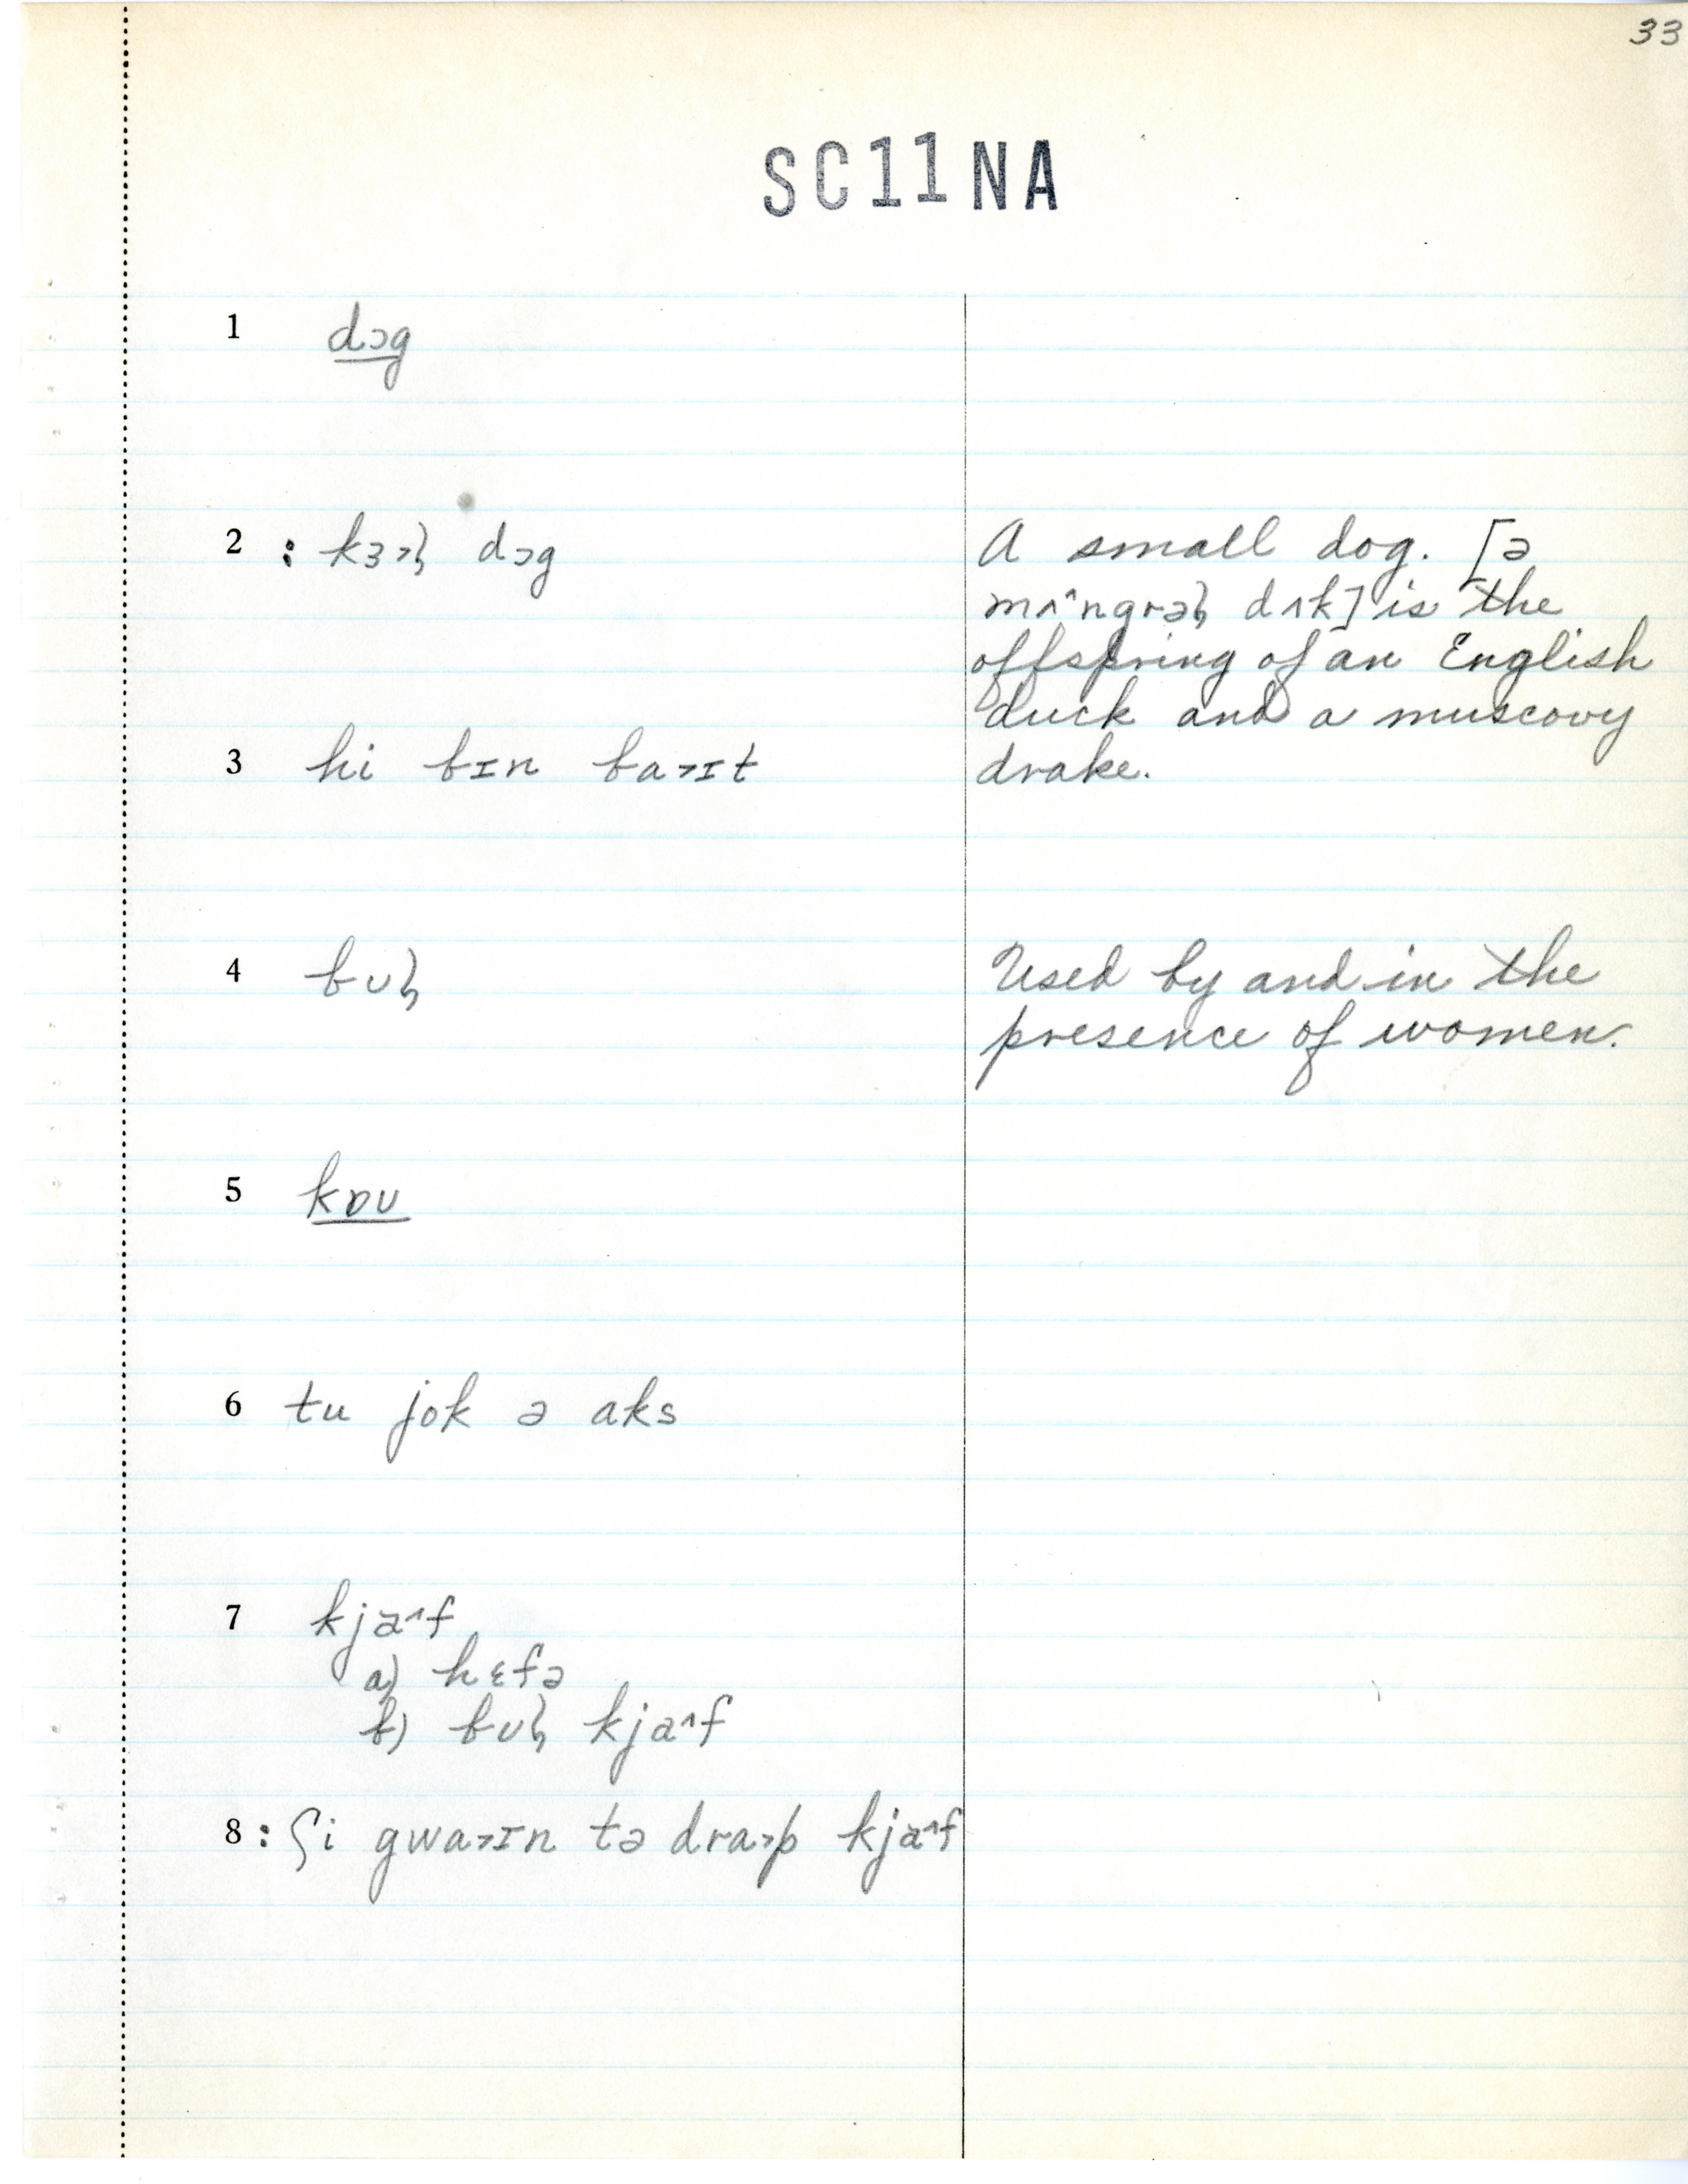 33
SC11NA
1 dɔg
2 : kɜ˃ɫ dɔg
A small dog. [ə
mʌ^ngrəɫ dʌk] is the
offspring of an English
duck and a muscovy
drake.
3 hi bɪn ba˃ɪt
4 bʊɫ
Used by and in the
presence of women.
5 kɒʊ
6 tu jok ə aks
7 kja^f
a) hɛfə
b) bʊɫ kja^f
8 : ʃi gwa˃ɪn tə dra˃p kja^f